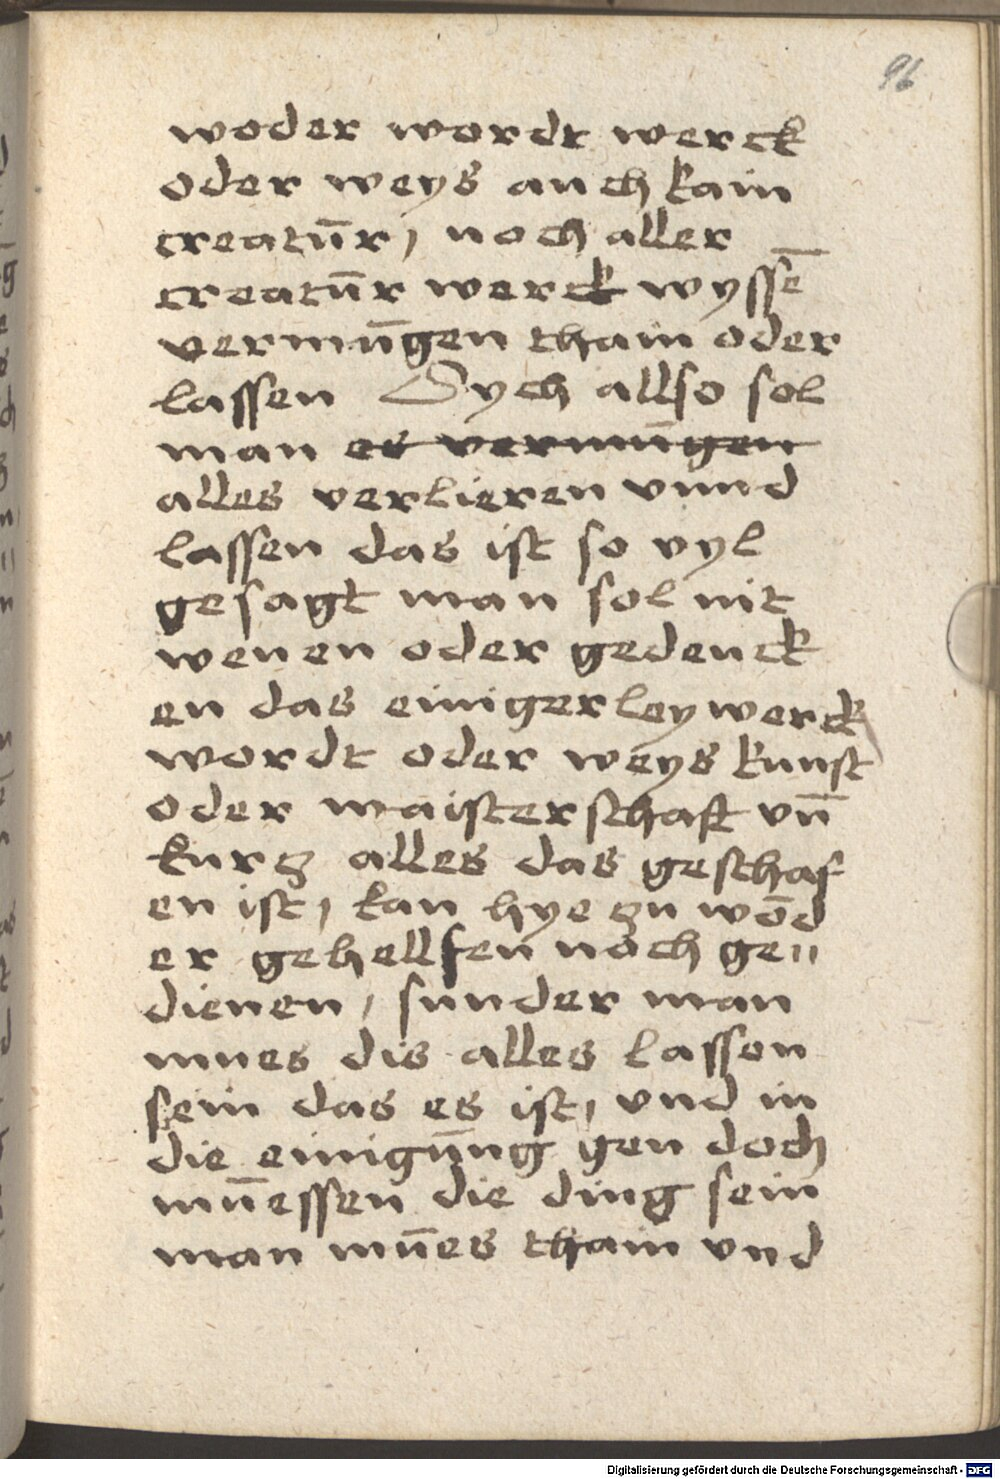 96
woder wordt werck
oder weys auch kain
creatūr, noch aller
creatūr werck wyssē
vermūgen thain oder
lassen Sych allso sol
man es vermūgen
alles verlieren vnnd
lassen das ist so vyl
gesagt man sol nit
wenen oder gedenck
en das einigerley werck
wordt oder weys kunst
oder maisterschaft vn̄
kurcz alles das geschaf
en ist, kan hye zu wōd
er gehellfen noch ge=
dienen, sunder man
mues dis alles lasson
sein das es ist, vnd in
die einigūng gen doch
mūessen die ding sein
man mūes thain vnd
Digitalisierung gefördert durch die Deutsche Forschungsgemeinschaft - DFG